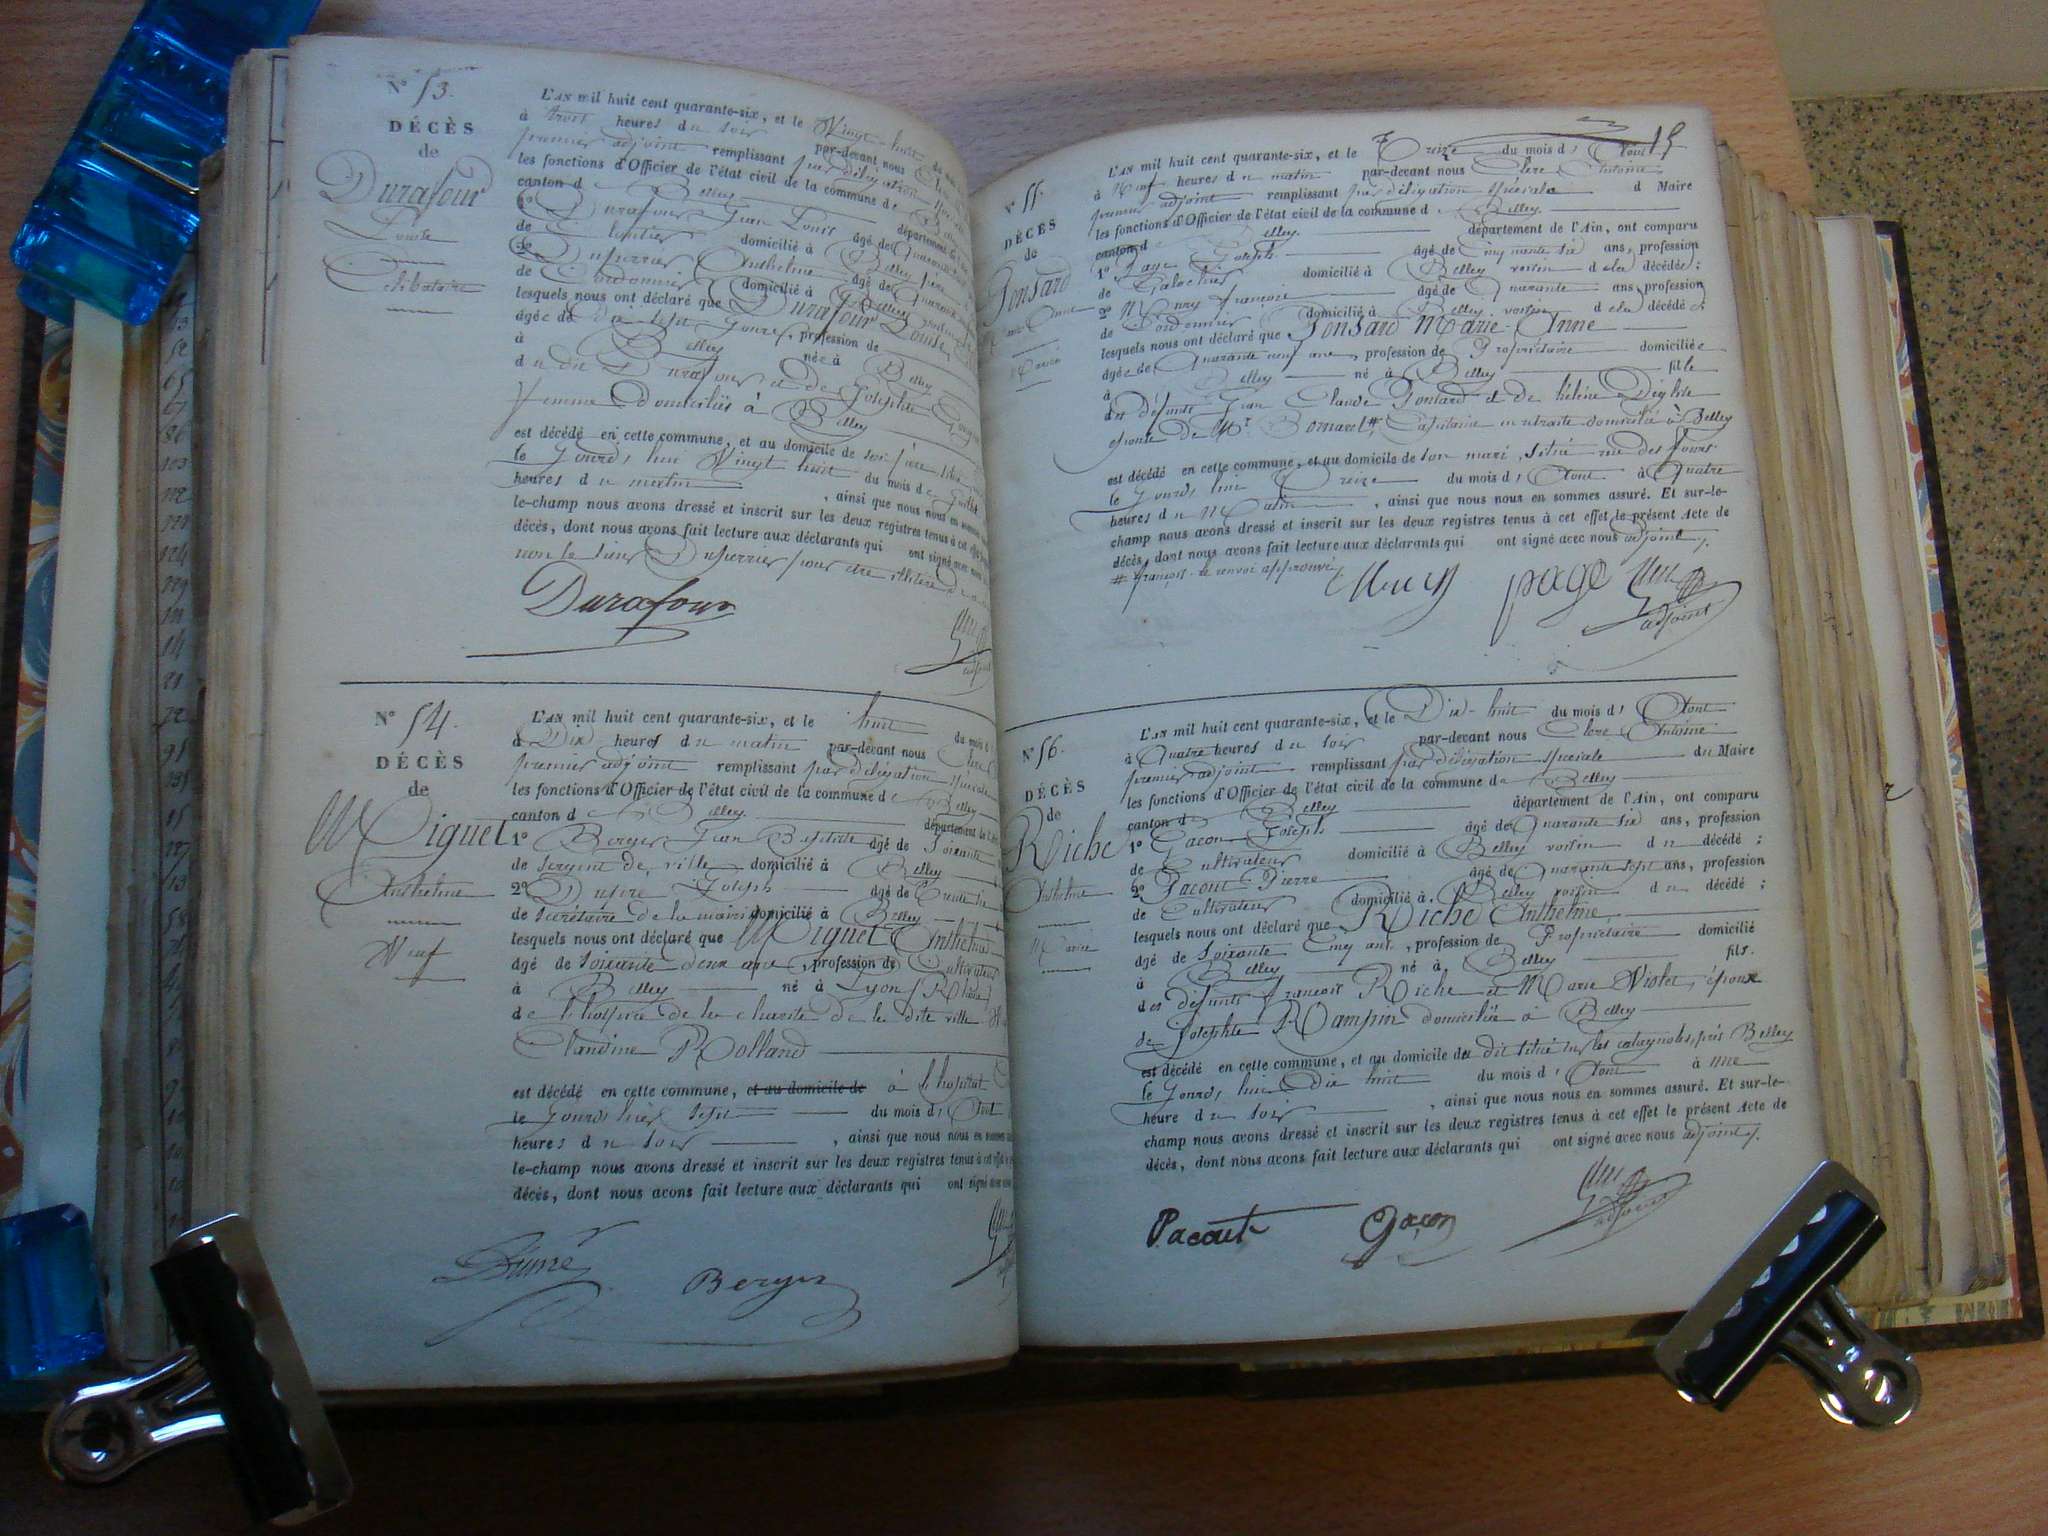 N° 53.
DÉCÈS
de
Durafour
Louise
Célibataire
L'AN mil huit cent quarante-six, et le Vingt huit
à trois heures du soir par-devant nous
premier adjoint remplissant par délégation
les fonctions d'Officier de l'état civil de la commune de
canton de Belley département de
1° Durafour Jean Louis âgé de Quarante
de domicilié à Belley père
2° Dufurrier Anthelme âgé de Quarante
de Cordonnier domicilié à Belley
lesquels nous ont déclaré que Durafour Louise
âgée de dix sept jours, profession de
à Belley née à Belley
du dit Durafour et de Josephte
femme domiciliés à Belley
est décédé en cette commune, et au domicile de son père
le Jourd'hui Vingt huit du mois de Juillet
heures du matin, ainsi que nous nous en sommes
le-champ nous avons dressé et inscrit sur les deux registres tenus à cet effet
décès, dont nous avons fait lecture aux déclarants qui ont signé avec nous
non le sieur Dufurrier pour être illitéré de
Durafour
adjoint
N° 54.
DÉCÈS
de
Miguet
Anthelme
Veuf
L'AN mil huit cent quarante-six, et le huit du mois d
à Dix heures du matin par-devant nous Clerc
premier adjoint remplissant par délégation spéciale
les fonctions d'Officier de l'état civil de la commune de Belley
canton de Belley département de l'Ain
1° Berger Jean Baptiste âgé de Soixante
de Sergent de ville domicilié à Belley
2° Joseph âgé de Trente
de Secrétaire de la mairie domicilié à Belley
lesquels nous ont déclaré que Miguet Anthelme
âgé de soixante deux ans, profession de Cultivateur
à Belley né à Lyon (Rhône)
de l'hospice de la charité de la dite ville
Claudine Rolland
est décédé en cette commune, et au domicile de à l'hopital
le Jourd'hier sept du mois d'Août
heures du soir, ainsi que nous nous en sommes
le-champ nous avons dressé et inscrit sur les deux registres tenus à cet effet
décès, dont nous avons fait lecture aux déclarants qui ont signé avec nous
Berger
15
N° 55.
DÉCÈS
de
Ponsard
Marie Anne
Mariée
L'AN mil huit cent quarante-six, et le Treize du mois d'Août
à Neuf heures du matin par-devant nous Clerc Antoine
premier adjoint remplissant par délégation spéciale d Maire
les fonctions d'Officier de l'état civil de la commune d Belley
canton d Belley département de l'Ain, ont comparu
1° Page Joseph âgé de Cinquante six ans, profession
de Galochier domicilié à Belley voisin d ela décédée;
2° François âgé de Quarante ans, profession
de Cordonnier domicilié à Belley voisin d ela décédé;
lesquels nous ont déclaré que Ponsard Marie Anne
âgée de Quarante neuf ans, profession de Propriétaire domiciliée
à Belley né à Belley fille
des défunts Jean Claude Ponsard et de hélène
épouse de Mr Bonarel #, Capitaine en retraite domicilié à Belley
est décédé en cette commune, et au domicile de son mari, situé rue des fours
le Jourd'hui Treize du mois d'Août à Quatre
heures du Matin, ainsi que nous nous en sommes assuré. Et sur-le-
champ nous avons dressé et inscrit sur les deux registres tenus à cet effet le présent Acte de
décès, dont nous avons fait lecture aux déclarants qui ont signé avec nous adjoint.
# françois. le renvoi approuvé
page
adjoint
N° 56.
DÉCÈS
de
Riche
Anthelme
Marié
L'AN mil huit cent quarante-six, et le Dix-huit du mois d'Août
à Quatre heures du soir par-devant nous Clerc Antoine
premier adjoint remplissant par délégation spéciale du Maire
les fonctions d'Officier de l'état civil de la commune de Belley
canton de Belley département de l'Ain, ont comparu
1° Gacon Joseph âgé de Quarante six ans, profession
de Cultivateur domicilié à Belley voisin du décédé;
2° Pacout Pierre âgé de Quarante sept ans, profession
de Cultivateur domicilié à Belley voisin du décédé;
lesquels nous ont déclaré que Riche Anthelme,
âgé de Soixante Cinq ans, profession de Propriétaire domicilié
à Belley né à Belley fils.
des défunts françois Riche et Marie Violet, époux
de Josephte Rampin domiciliée à Belley
est décédé en cette commune, et au domicile du dit situé sur les catagnoles, près Belley
le Jourd'hui Dix huit du mois d'Août à une
heure du soir, ainsi que nous nous en sommes assuré. Et sur-le-
champ nous avons dressé et inscrit sur les deux registres tenus à cet effet le présent Acte de
décès, dont nous avons fait lecture aux déclarants qui ont signé avec nous adjoint.
Pacout Gacon
adjoint